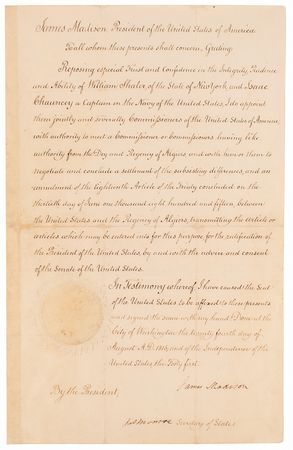 James Madison President of the United States of America
To all whom these presents shall concern, Greeting:
Reposing especial Trust and Confidence in the Integrity, Prudence
and Ability of William Shaler, of the State of New York, and Isaac
Chauncey a Captain in the Navy of the United States, I do appoint
them jointly and severally Commissioners of the United States of America,
with authority to meet a Commissioner or Commissioners having like
authority from the Dey and Regency of Algiers, and with him or them to
negotiate and conclude a settlement of the subsisting differences, and an
amendment of the Eighteenth Article of the Treaty concluded on the
thirtieth day of June one thousand eight hundred and fifteen, between
the United States and the Regency of Algiers, transmitting the article or
articles which may be entered into for this purpose, for the ratification of
the President of the United States, by and with the advice and consent
of the Senate of the United States.
In Testimony whereof I have caused the Seal
of the United States to be affixed to these presents
and signed the same with my hand. Done at the
City of Washington the twenty fourth day of
August A.D. 1816; and of the Independence of the
United States the Forty first.
James Madison
By the President,
Jas Monroe Secretary of State